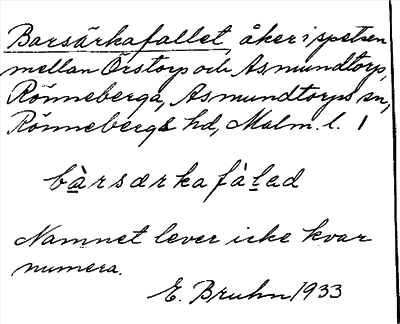 Barsärkafallet, åker i spetsen
mellan Örstorp och Asmundtorp,
Rönneberga, Asmundtorps sn,
Rönnebergs hd, Malm. l. 1
bàrsærkafàlad
Namnet lever icke kvar
numera.
E. Bruhn 1933